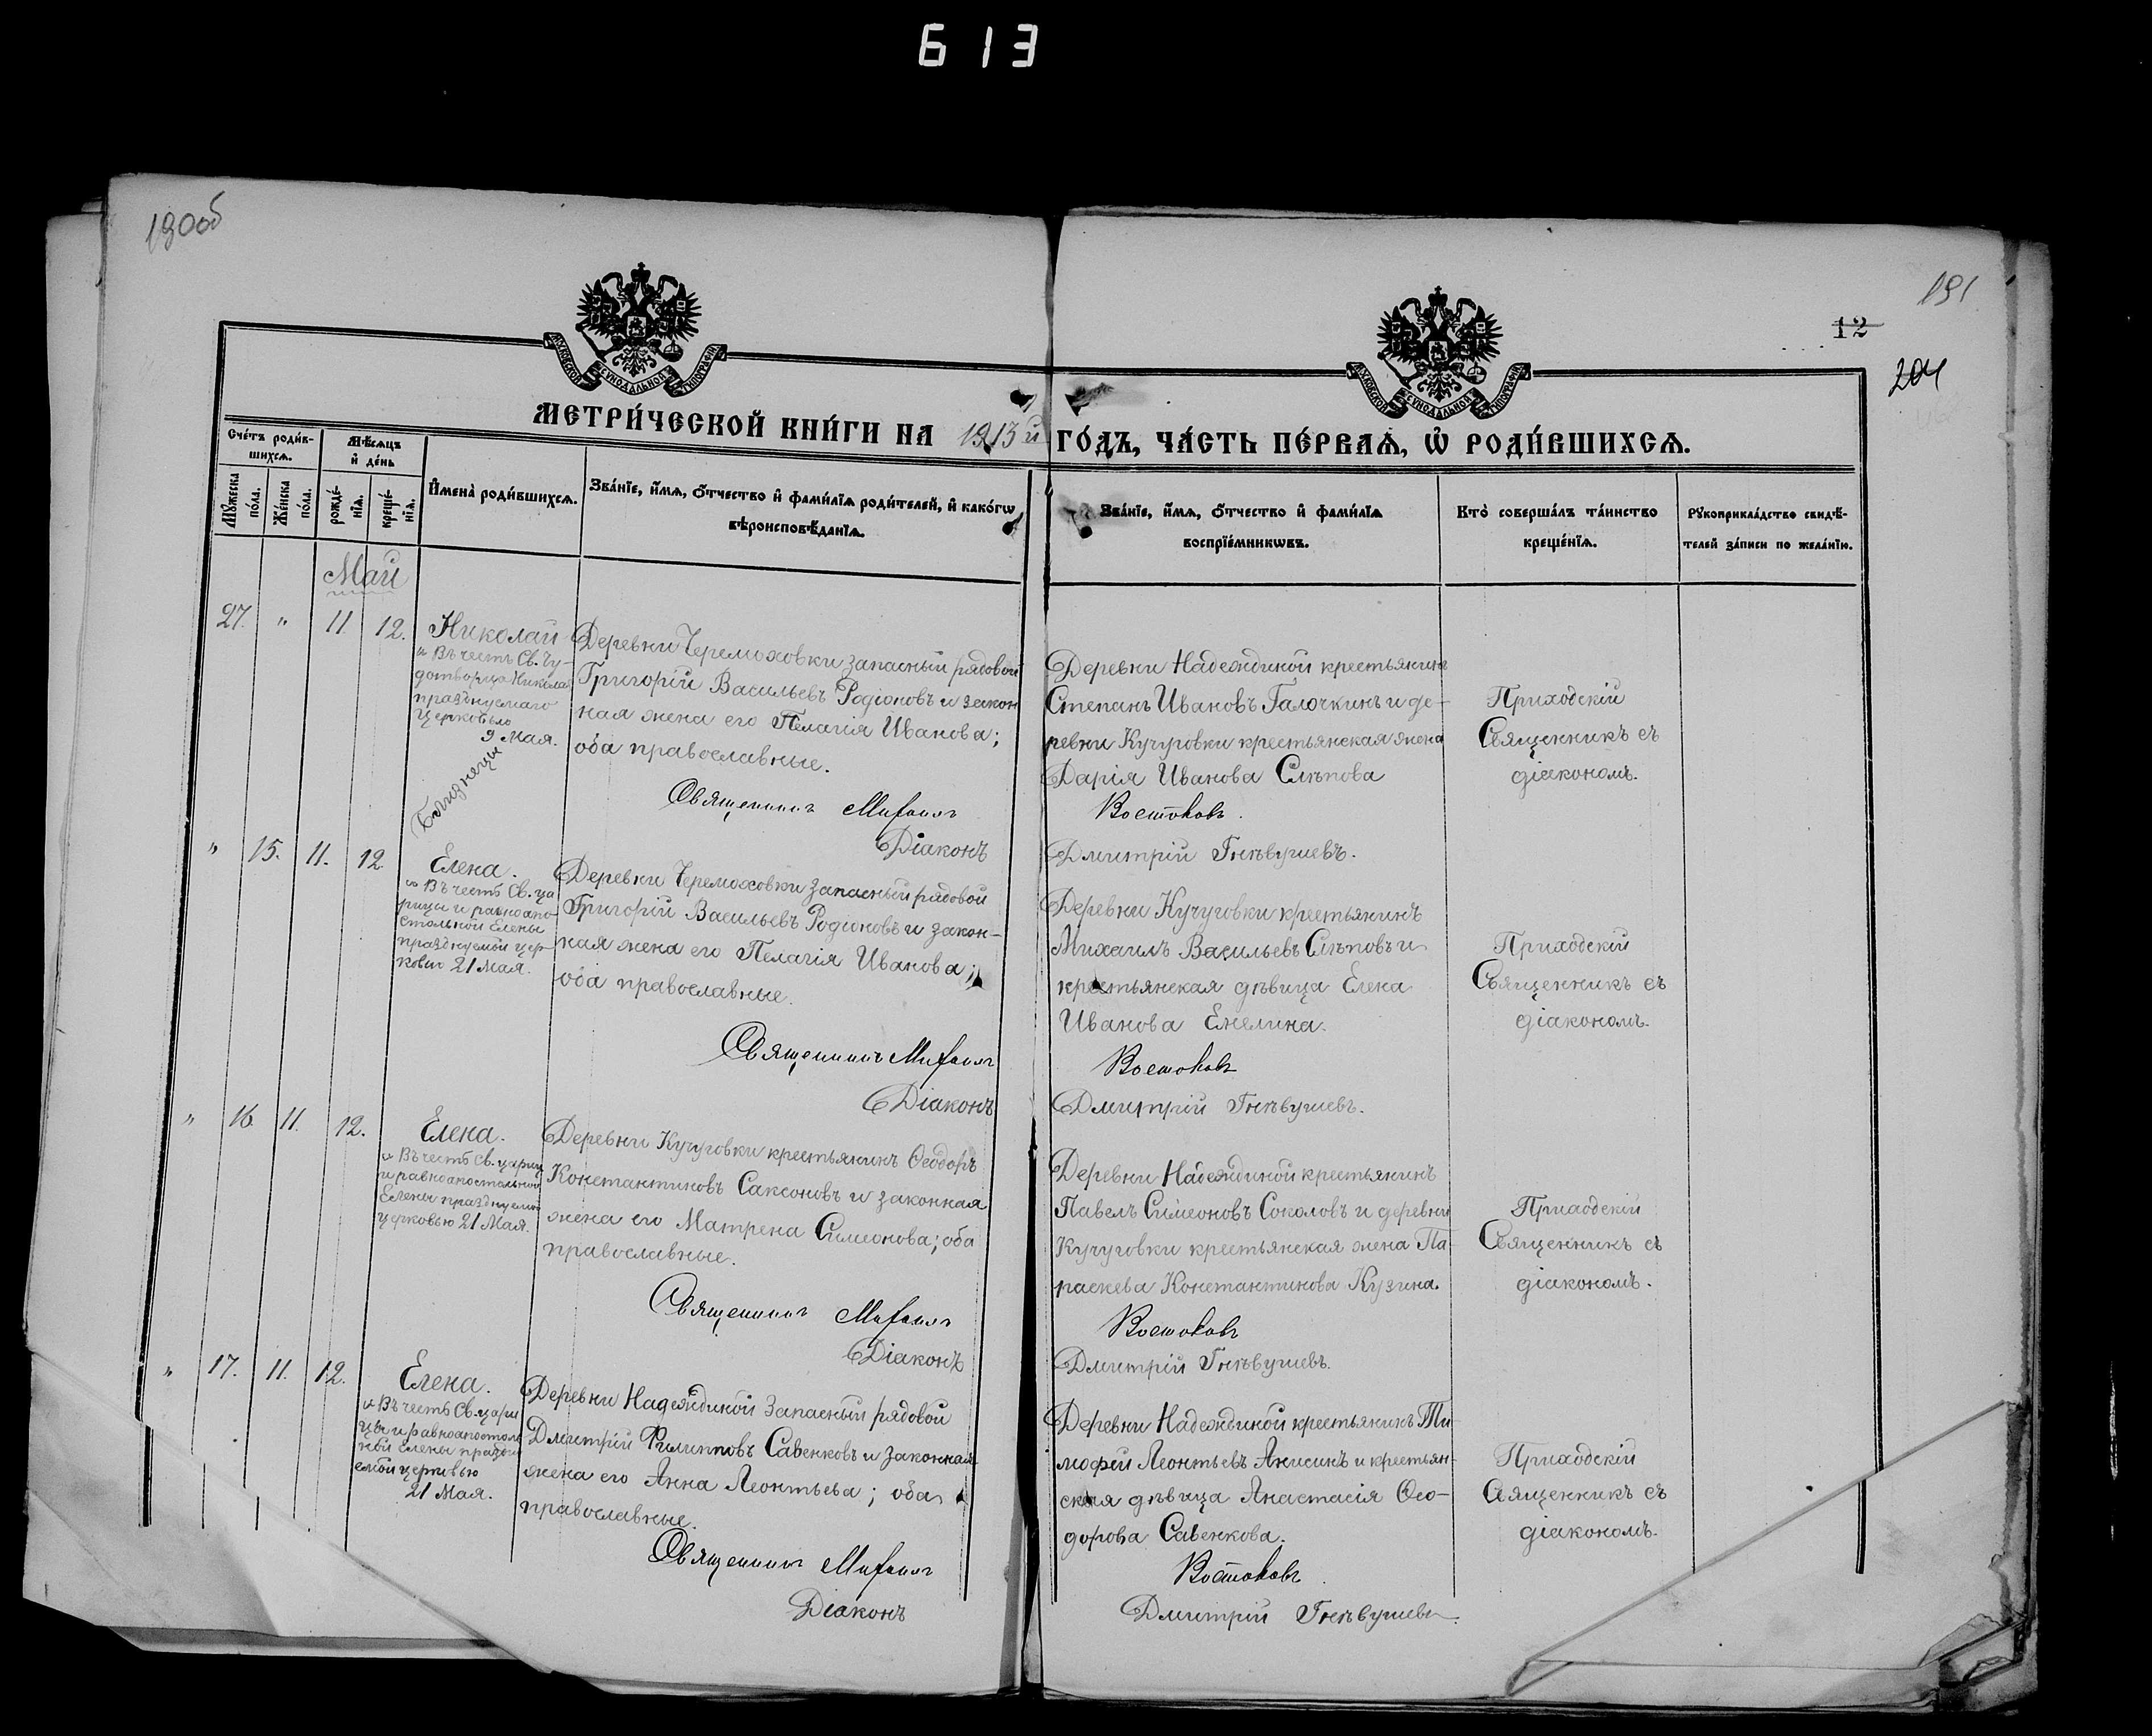 613
190об
191
12
204
МОСКОВСКОЙ СѴНОДАЛЬНОЙ ТИПОГРАФІИ
МОСКОВСКОЙ СѴНОДАЛЬНОЙ ТИПОГРАФІИ
МЕТРИ́ЧЕСКОЙ КНИ́ГИ НА 1913й ГО́ДЪ, ЧА́СТЬ ПЕ́РВАѦ, Ѡ҆ РОДИ́ВШИХСѦ.
Сче́тъ роди́в-
шихсѧ.
Мѣ́сѧцъ
и҆ де́нь
Мꙋ́жеска
по́ла.
Же́нска
по́ла.
рожде́-
нїѧ.
креще́-
нїѧ.
И҆мена̀ роди́вшихсѧ.
Зва́нїе, и҆́мѧ, ѻ҆́тчество и҆ фами́лїѧ роди́телей, и҆ како́гѡ
вѣроисповѣ́данїѧ.
Зва́нїе, и҆́мѧ, ѻ҆́тчество и҆ фами́лїѧ
воспрїе́мникѡвъ.
Кто̀ соверша́лъ та́инство
креще́нїѧ.
Рꙋкоприкла́дство свидѣ́-
телей за́писи по жела́нїю.
Май
27. " 11 12.
Николай
" Въ честь Св. Чу-
дотворца Николая
празднуемаго
церковью
9 Мая.
Близнецы
Деревни Черемоховки запасный рядовой
Григорій Васильевъ Родіоновъ и закон
ная жена его Пелагія Иванова;
оба православные.
Священникъ Михаилъ
Діаконъ
Деревни Надеждиной крестьянинъ
Степанъ Ивановъ Галочкинъ и де-
ревни Кучуговки крестьянская жена
Дарія Иванова Слѣпова
Востоковъ.
Дмитрій Гнѣвушевъ.
Приходскій
Священникъ съ
діакономъ.
" 15. 11. 12
Елена.
" Въ честь Св. ца
рицы и равноапо-
стольной Елены
празднуемой цер-
ковью 21 Мая.
Деревни Черемоховки запасный рядовой
Григорій Васильевъ Родіоновъ и закон-
ная жена его Пелагія Иванова;
оба православные.
Священникъ Михаилъ
Діаконъ
Деревни Кучуговки крестьянинъ
Михаилъ Васильевъ Слѣповъ и
крестьянская дѣвица Елена
Иванова Емелина.
Востоковъ
Дмитрій Гнѣвушевъ.
Приходскій
Священникъ съ
діакономъ.
" 16 11. 12.
Елена.
" Въ честь св. цариц
и равноапостольной
Елены празднуемой
церковью 21 Мая.
Деревни Кучуговки крестьянинъ Ѳеодоръ
Константиновъ Саксоновъ и законная
жена его Матрена Симеонова; оба
православные.
Священникъ Михаилъ
Діаконъ
Деревни Надеждиной крестьянинъ
Павелъ Симеоновъ Соколовъ и деревни
Кучуговки крестьянская жена Па-
раскева Константинова Кузина.
Востоковъ
Дмитрій Гнѣвушевъ.
Приходскій
Священникъ съ
діакономъ.
" 17. 11. 12.
Елена.
" Въ честь Св. цари
цы и равноапостоль
ной Елены праздну
емой церковью
21 Мая.
Деревни Надеждиной запасный рядовой
Дмитрій Филипповъ Савенковъ и законная
жена его Анна Леонтьева; оба
православные.
Священникъ Михаилъ
Діаконъ
Деревни Надеждиной крестьянинъ Ти-
мофей Леонтьевъ Анисинъ и крестьян-
ская дѣвица Анастасія Ѳео-
дорова Савенкова.
Востоковъ
Дмитрій Гнѣвушевъ.
Приходскій
Священникъ съ
діакономъ.